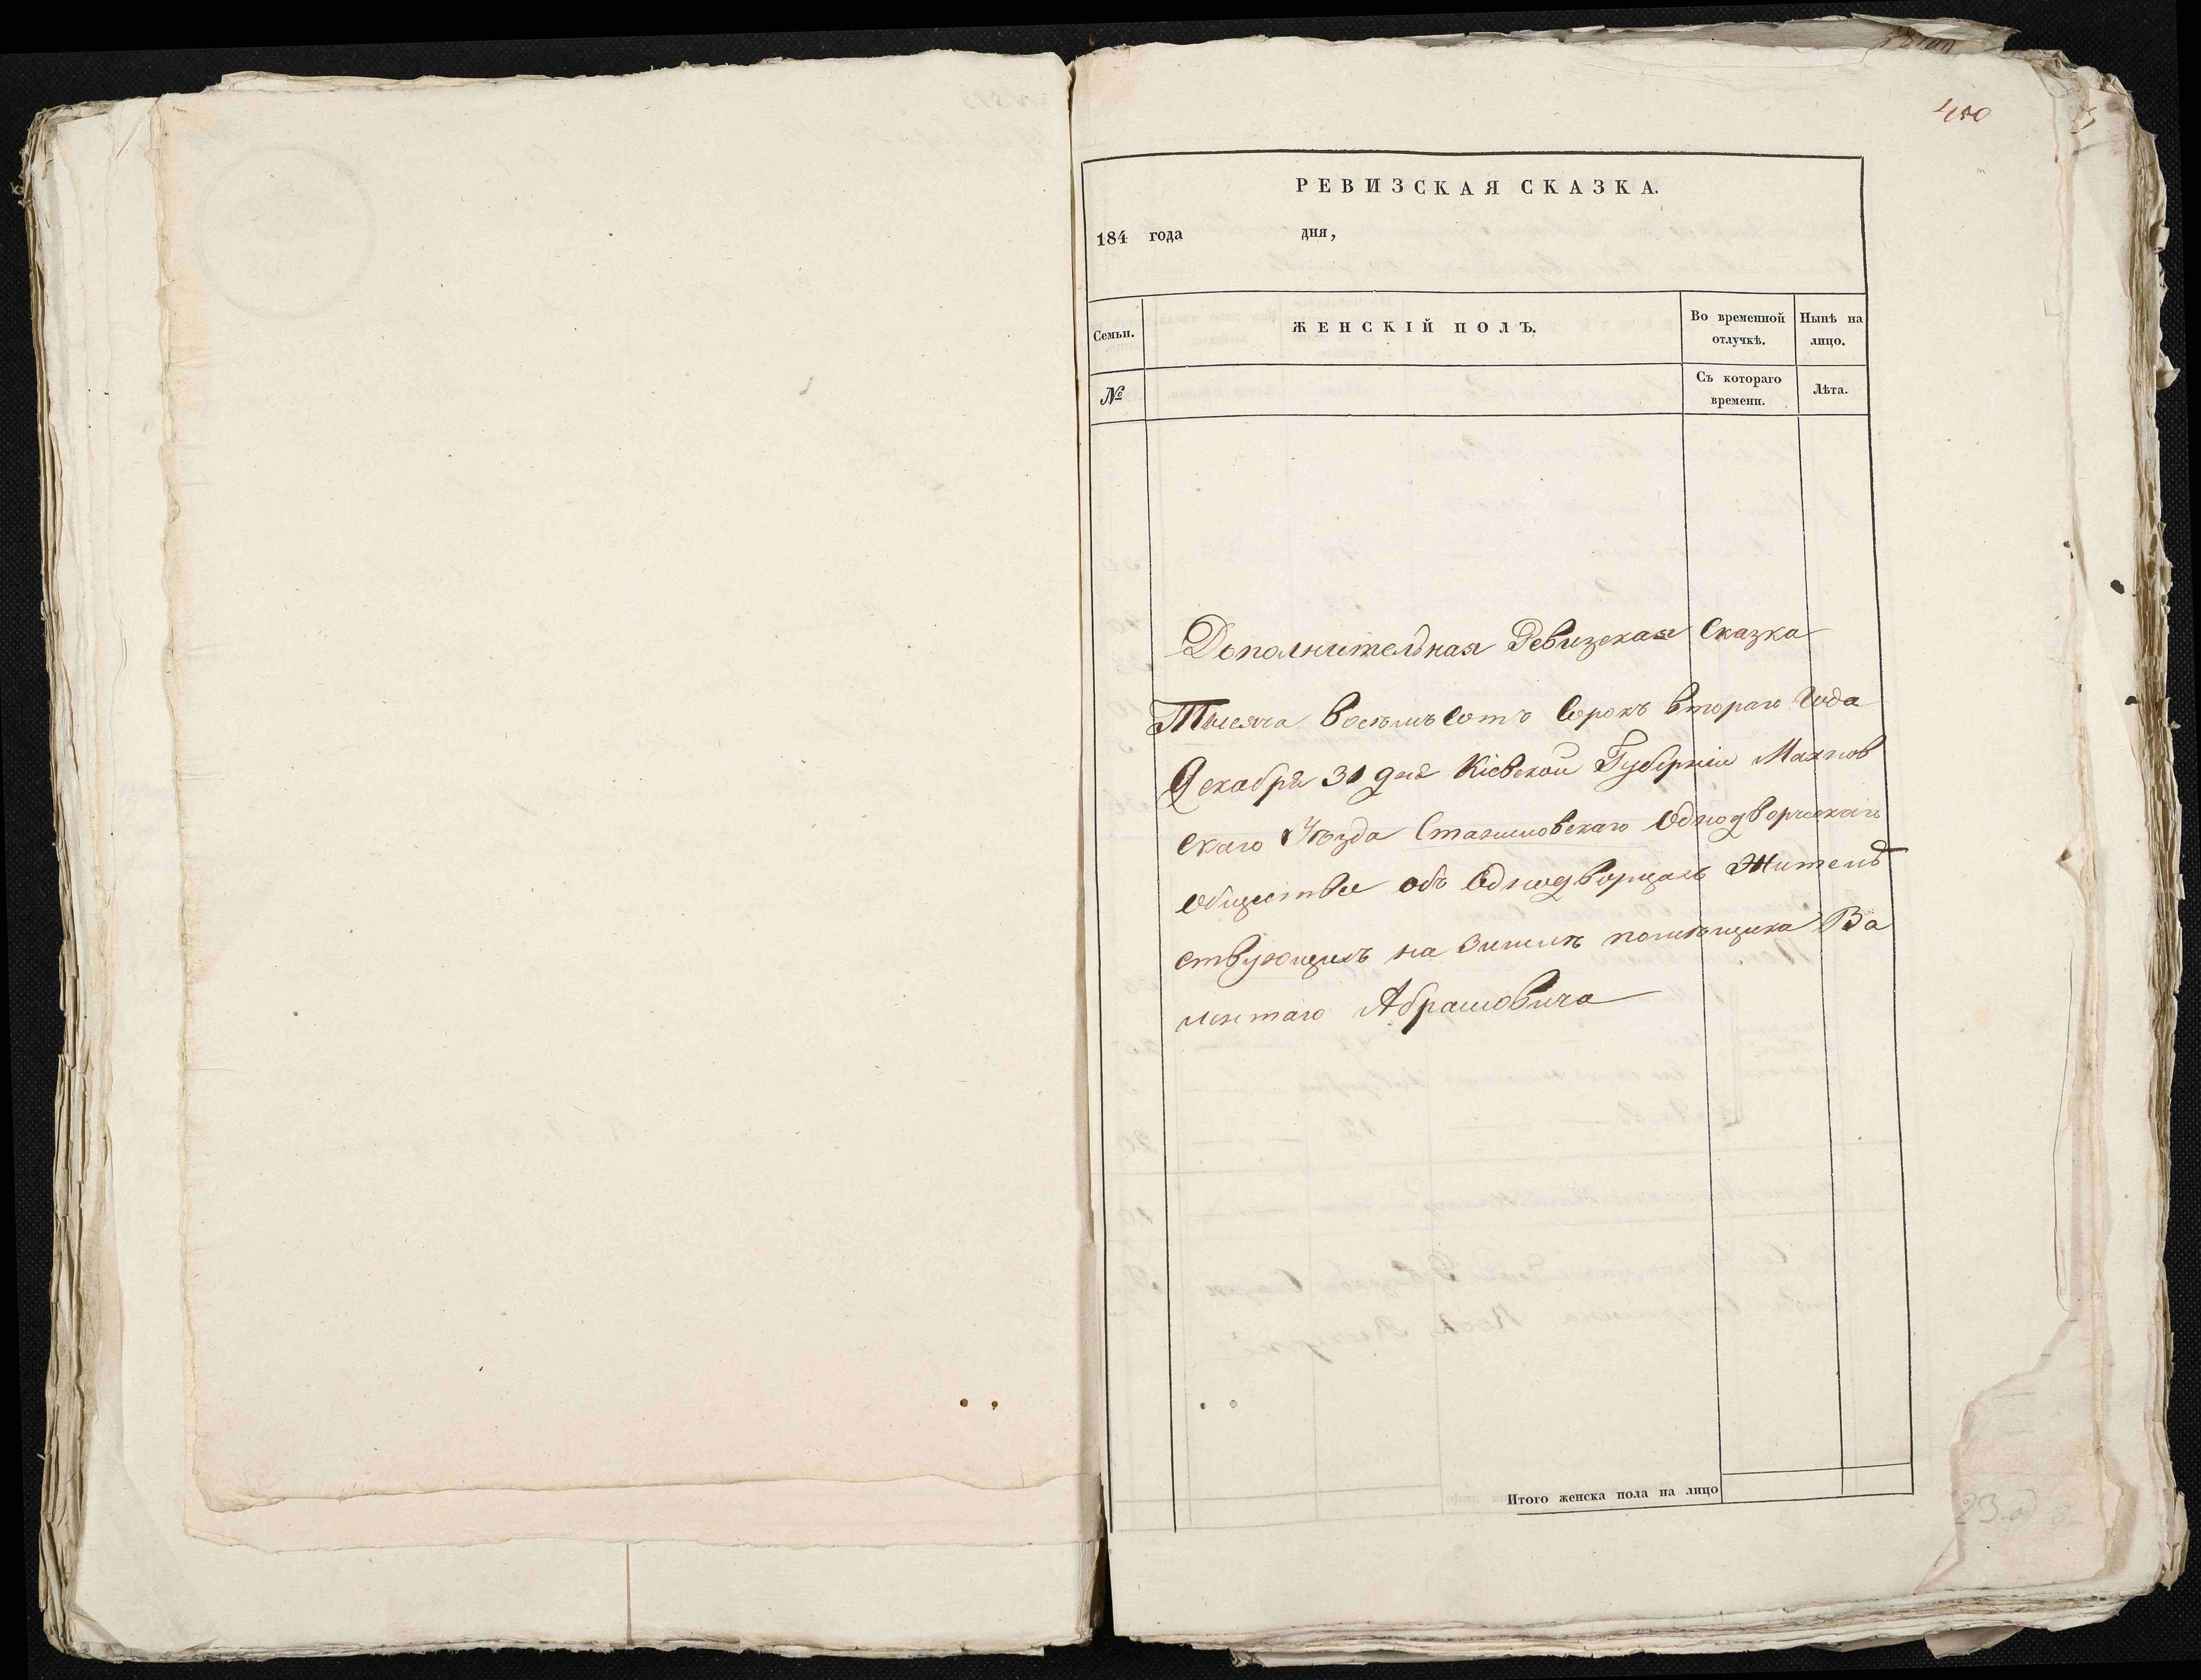 450
РЕВИЗСКАЯ СКАЗКА.
184 года дня,
Семьи.
ЖЕНСКІЙ ПОЛЪ.
Во временной отлучкѣ.
Нынѣ на лицо.
№
Съ котораго времени.
Лѣта.
Дополнительная Ревизская Сказка
Тысяча восемь сотъ Сорокъ втораго Года
Декабря 31 дня Кіевской Губерніи Махнов
скаго Уѣзда Однодворческаго
Общества объ Однодворцахъ Житель
ствующихъ на Земли помѣщика Ва
лентаго Абрамовича
Итого женска пола на лицо